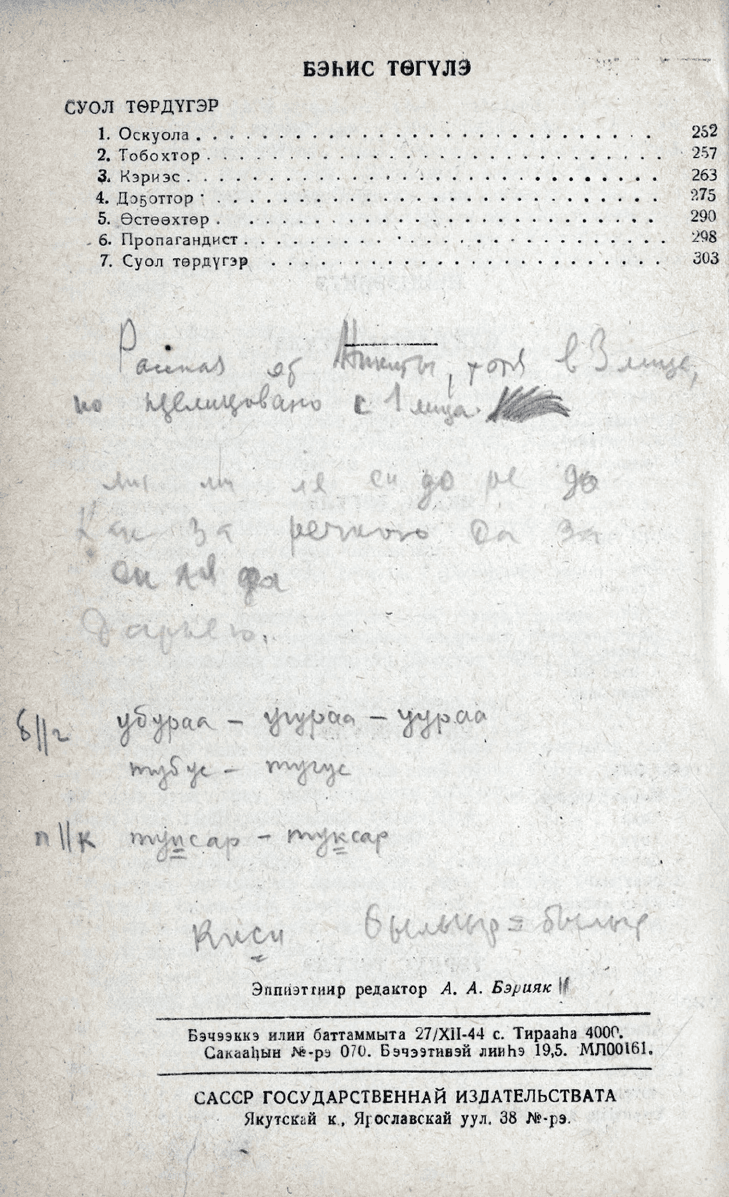 БЭҺИС ТӨГҮЛЭ
СУОЛ ТӨРДҮГЭР
1. Оскуола . . . . . . . . . . . . . . . . . . . . . 252
2. Тобохтор . . . . . . . . . . . . . . . . . . . . . 257
3. Кэриэс . . . . . . . . . . . . . . . . . . . . . 263
4. Доҕоттор . . . . . . . . . . . . . . . . . . . . . 275
5. Өстөөхтөр . . . . . . . . . . . . . . . . . . . . . 290
6. Пропагандист . . . . . . . . . . . . . . . . . . . . . 298
7. Суол төрдүгэр . . . . . . . . . . . . . . . . . . . . . 303
Рассказ Никиты, хотя в 3 лице,
но с 1 лица.
ми ми ля си до ре до
Как за речкою да за
си ля фа
Дарьею.
б||г убураа – угураа – уураа
тубус – тугус
п||к тупсар – туксар
Киси былыыр = былыр
Эппиэттиир редактор А. А. Бэрияк
Бэчээккэ илии баттаммыта 27/XII-44 с. Тирааһа 4000.
Сакааһын №-рэ 070. Бэчээтинэй лииһэ 19,5. МЛ00161.
САССР ГОСУДАРСТВЕННАЙ ИЗДАТЕЛЬСТВАТА
Якутскай к., Ярославскай уул. 38 №-рэ.